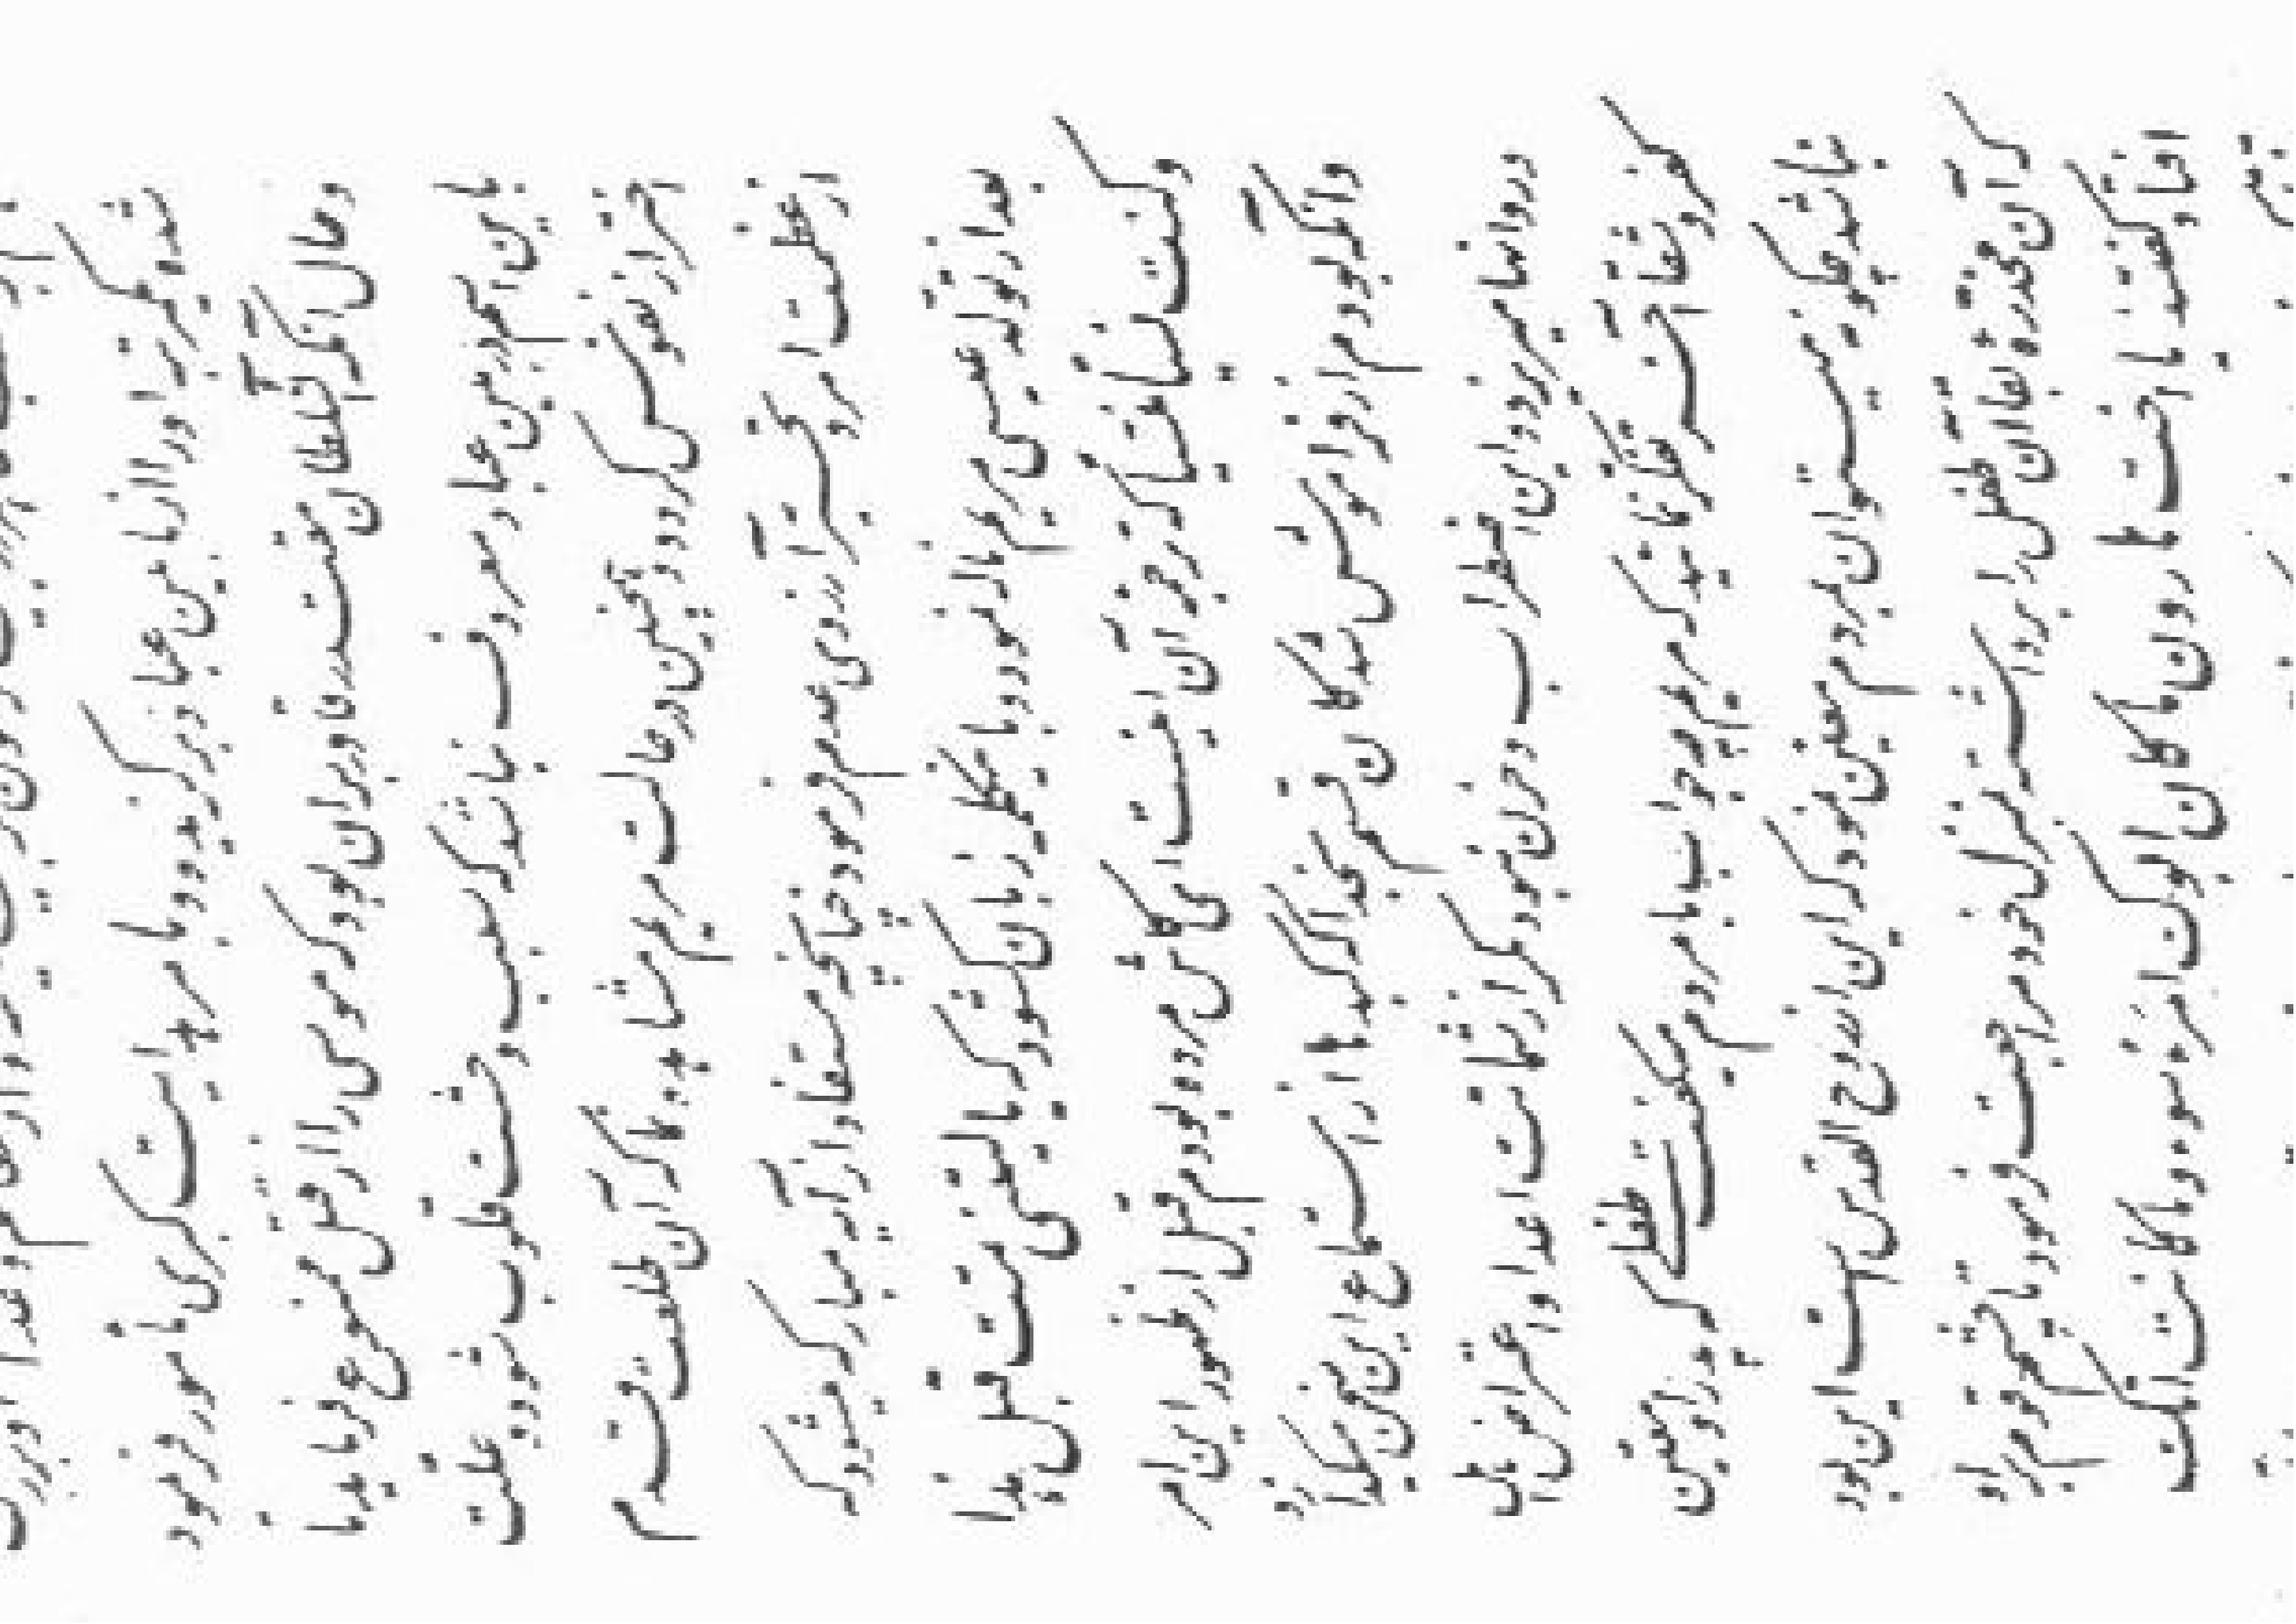 شده یکمرتبه او را از ما بین عباد برگزیده و بامر هدایت کبری مأمور فرمود
و حال آنکه آن سلطان مقتدر قادر بر آن بود که موسی را از قتل ممنوع فرماید تا
باین اسم در بین عباد معروف نباشد که سبب وحشت قلوب شود و علّت
احتراز نفوس گردد و همچنین در حالت مریم مشاهده نما که آن طلعت قدم
از عظمت امر و تحیّر آرزوی عدم فرمود چنانچه مستفاد از آیه مبارکه میشود که
بعد از تولد عیسی مریم ناله نمود و باین کلمه زبان گشود که یا لیتنی متّ قبل هذا
و کنت نسیاً منسیاً که ترجمه آن اینست ای کاش مرده بودم قبل از ظهور این امر
و آنکه بودم از فراموش شدگان قسم بخدا که کبدها از استماع این سخن میگدازد
و روانها میریزد و این اضطراب و حزن نبود مگر از شماتت اعدا و اعتراض اهل
کفر و شقا آخر تفکّر نمائید که مریم چه جواب با مردم میگفت طفلی که پدر او معیّن
نباشد چگونه میتوان بمردم معیّن نمود که این از روح القدس است این بود
که آن مخدّره بقا آن طفل را برداشته بمنزل خود مراجعت فرمود تا چشم قوم بر او
افتاد گفتند یا اخت هارون ما کان ابوک امرء سوء و ما کانت امّک